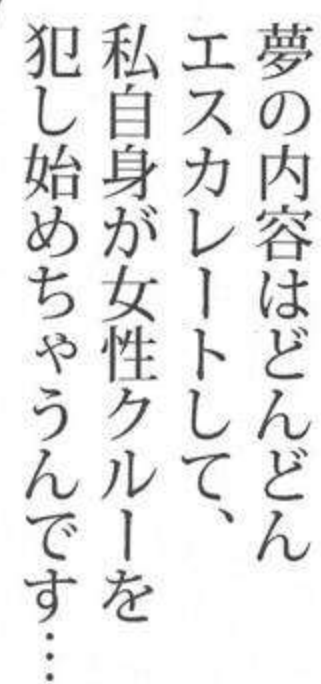 夢の内容はどんどん
エスカレートして、
私自身が女性クルーを
犯し始めちゃうんです…